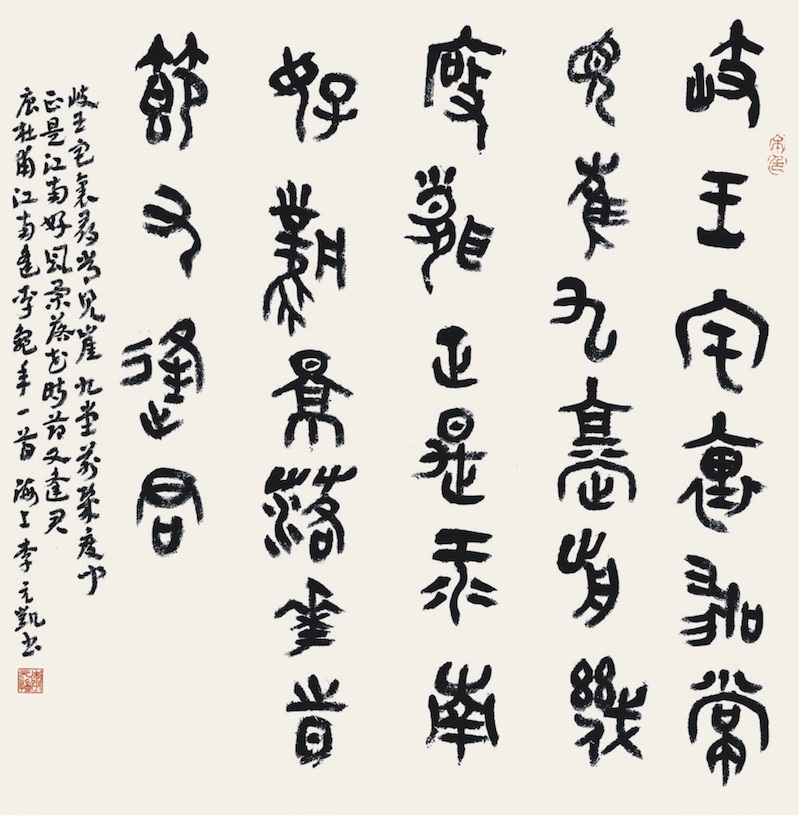 岐王宅裏尋常
見崔九堂前幾
度聞正是江南
好風景落華時
節又逢君
岐王宅裏尋常見崔九堂前幾度聞
正是江南好風景落花時節又逢君
唐杜甫江南逢李龜年一首海上李元凱書